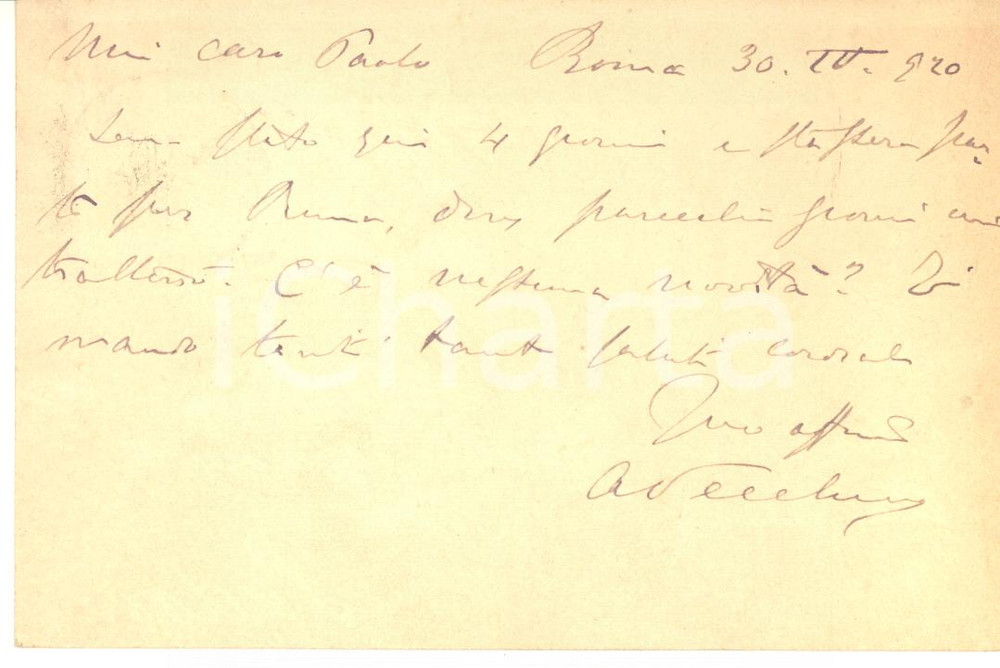 Mio caro Paolo Roma 30. IV. 920
Sono stato qui 4 giorni e stassera par-
to per Roma, dove parecchi giorni mi
tratterrò. C'è nessuna novità? Ti
mando tanti tanti saluti cordiali
Tuo affmo
A Vecchi
iCharta